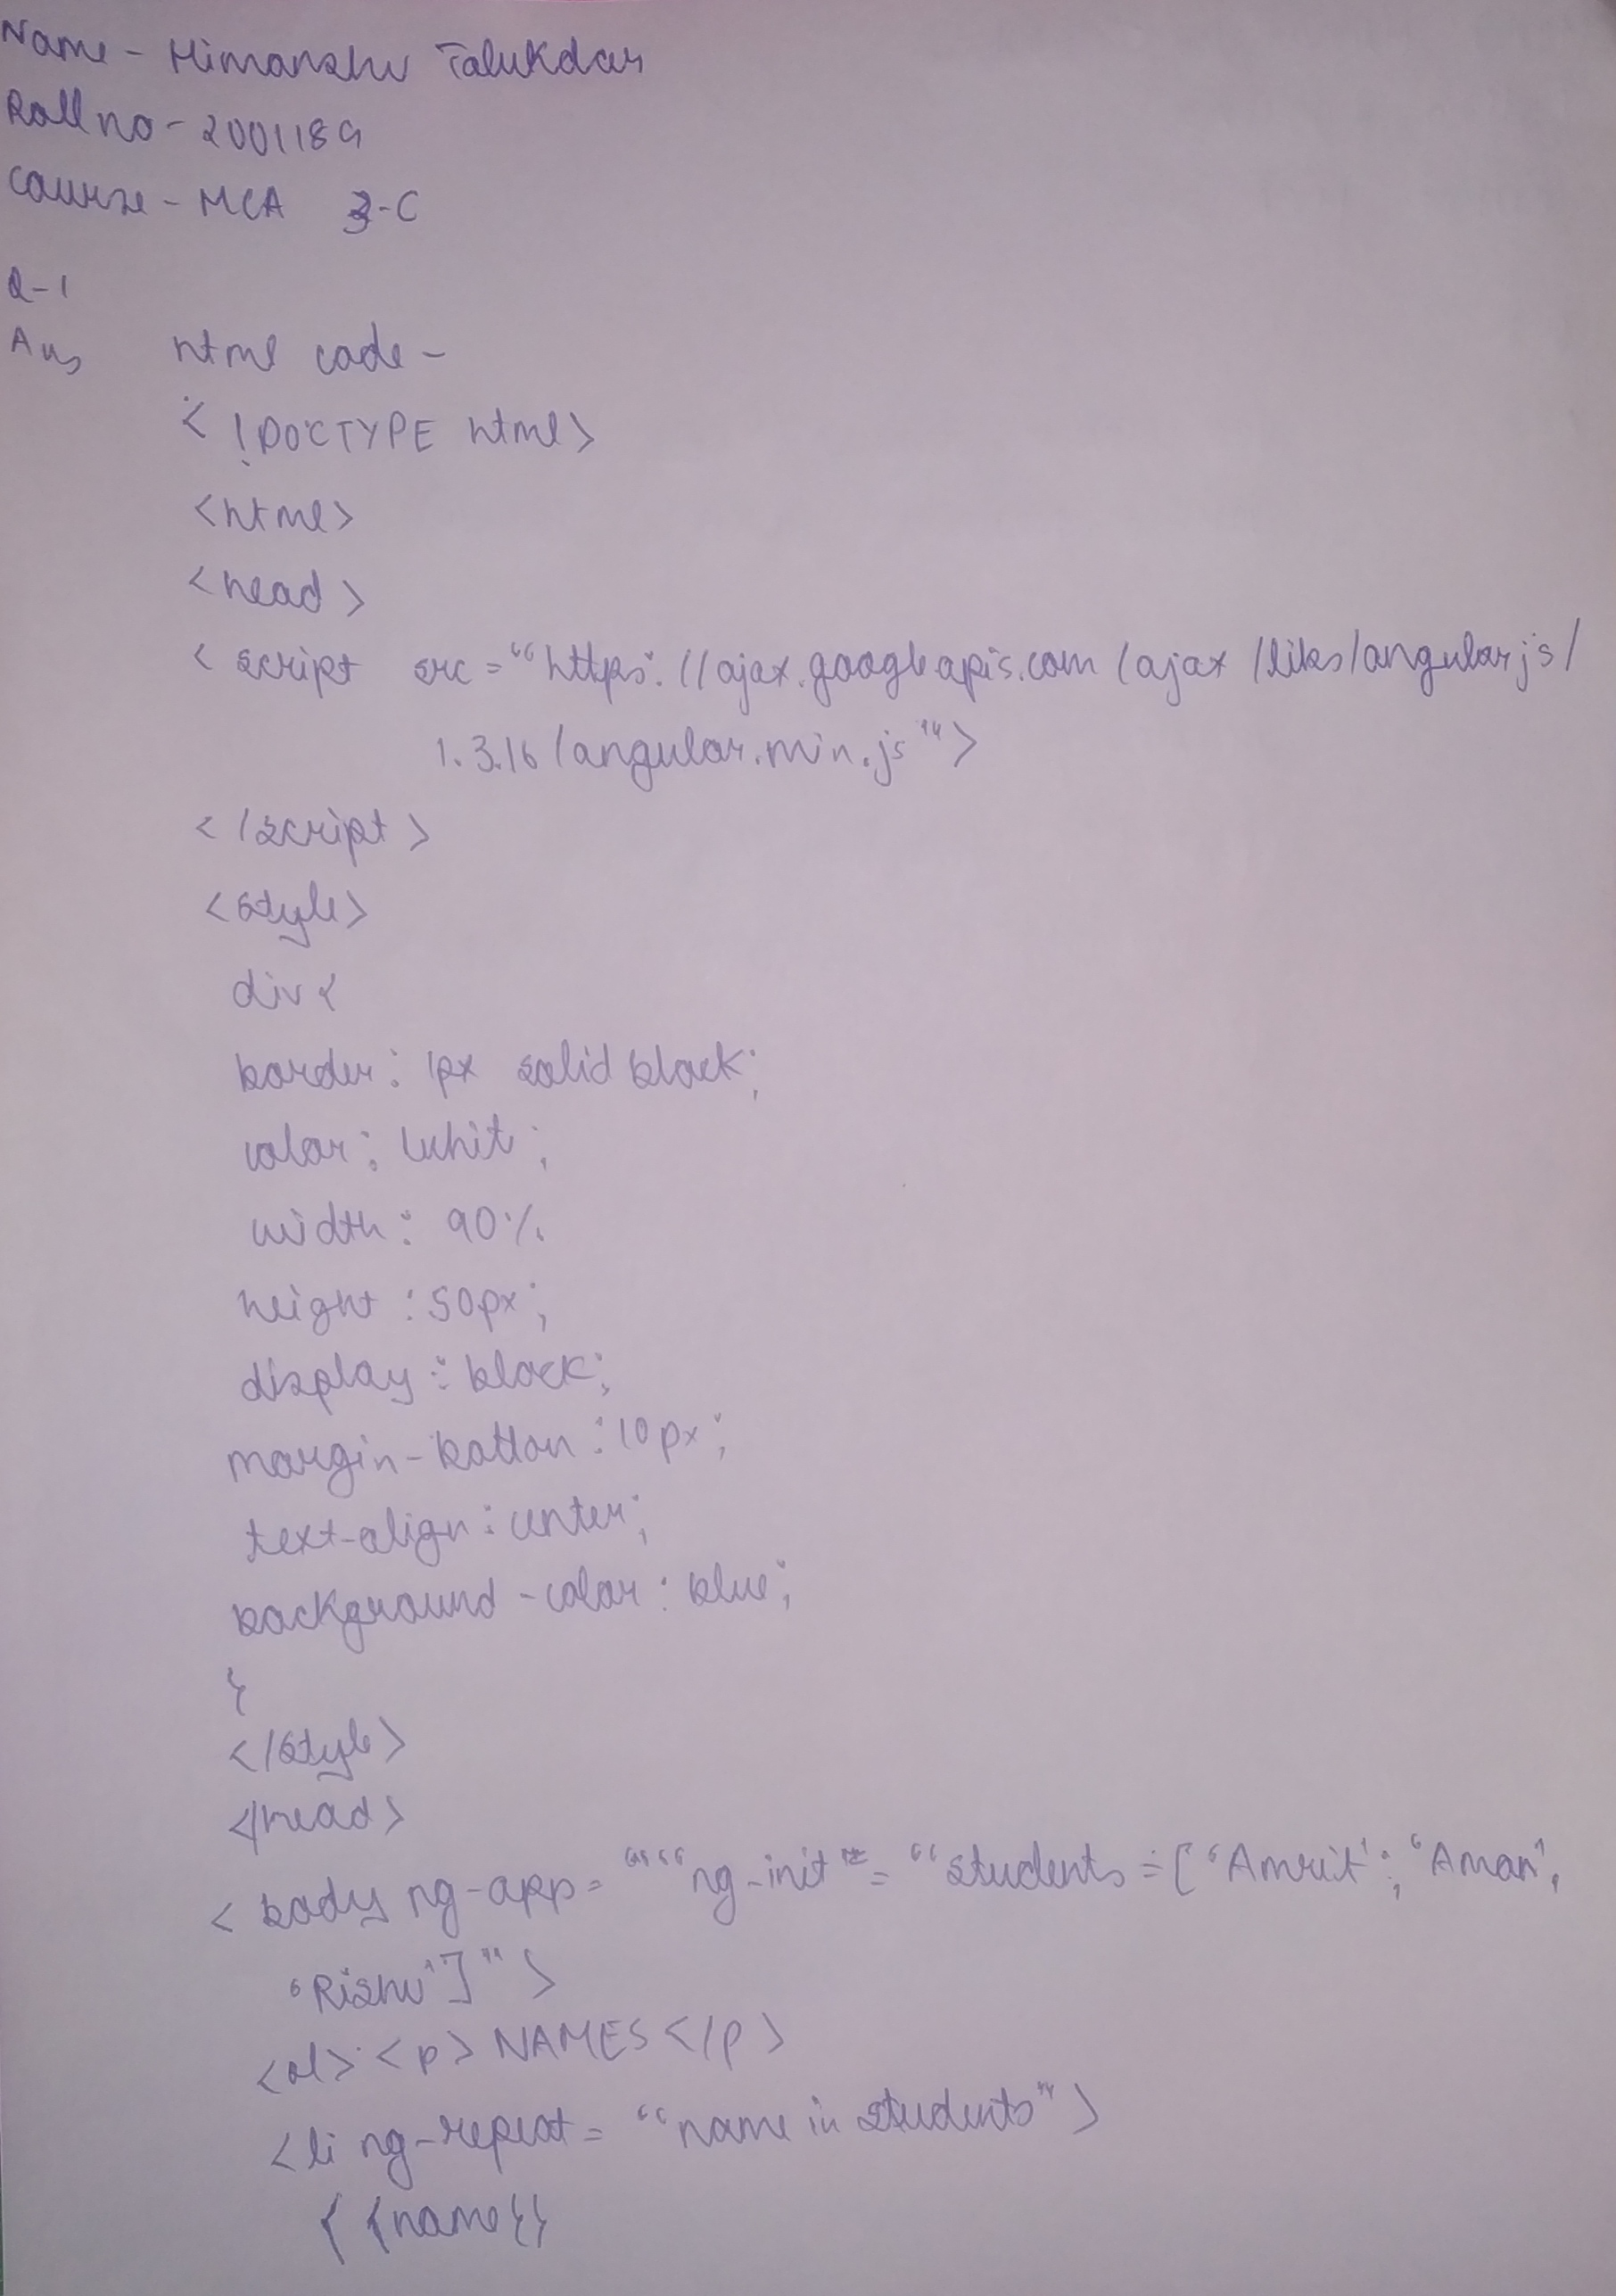 Name - Himanshu Talukdar
Roll no - 2001189
Course - MCA 3-C
Q-1
Ans html code -
< !DOCTYPE html>
<html>
<head>
< script src = "https://ajax.googleapis.com/ajax/libs/angularjs/
1.3.16/angular.min.js">
</script>
<style>
div{
border: 1px solid black;
color: whit;
width: 90%
height: 50px;
display: block;
margin-bottom: 10px;
text-align: center;
background-color: blue;
}
</style>
</head>
< body ng-app = "" "ng-init" = "students = ['Amrit'; 'Aman',
'Rishu']">
<ol> <p> NAMES </p>
<li ng-repeat = "name in students">
{{name}}